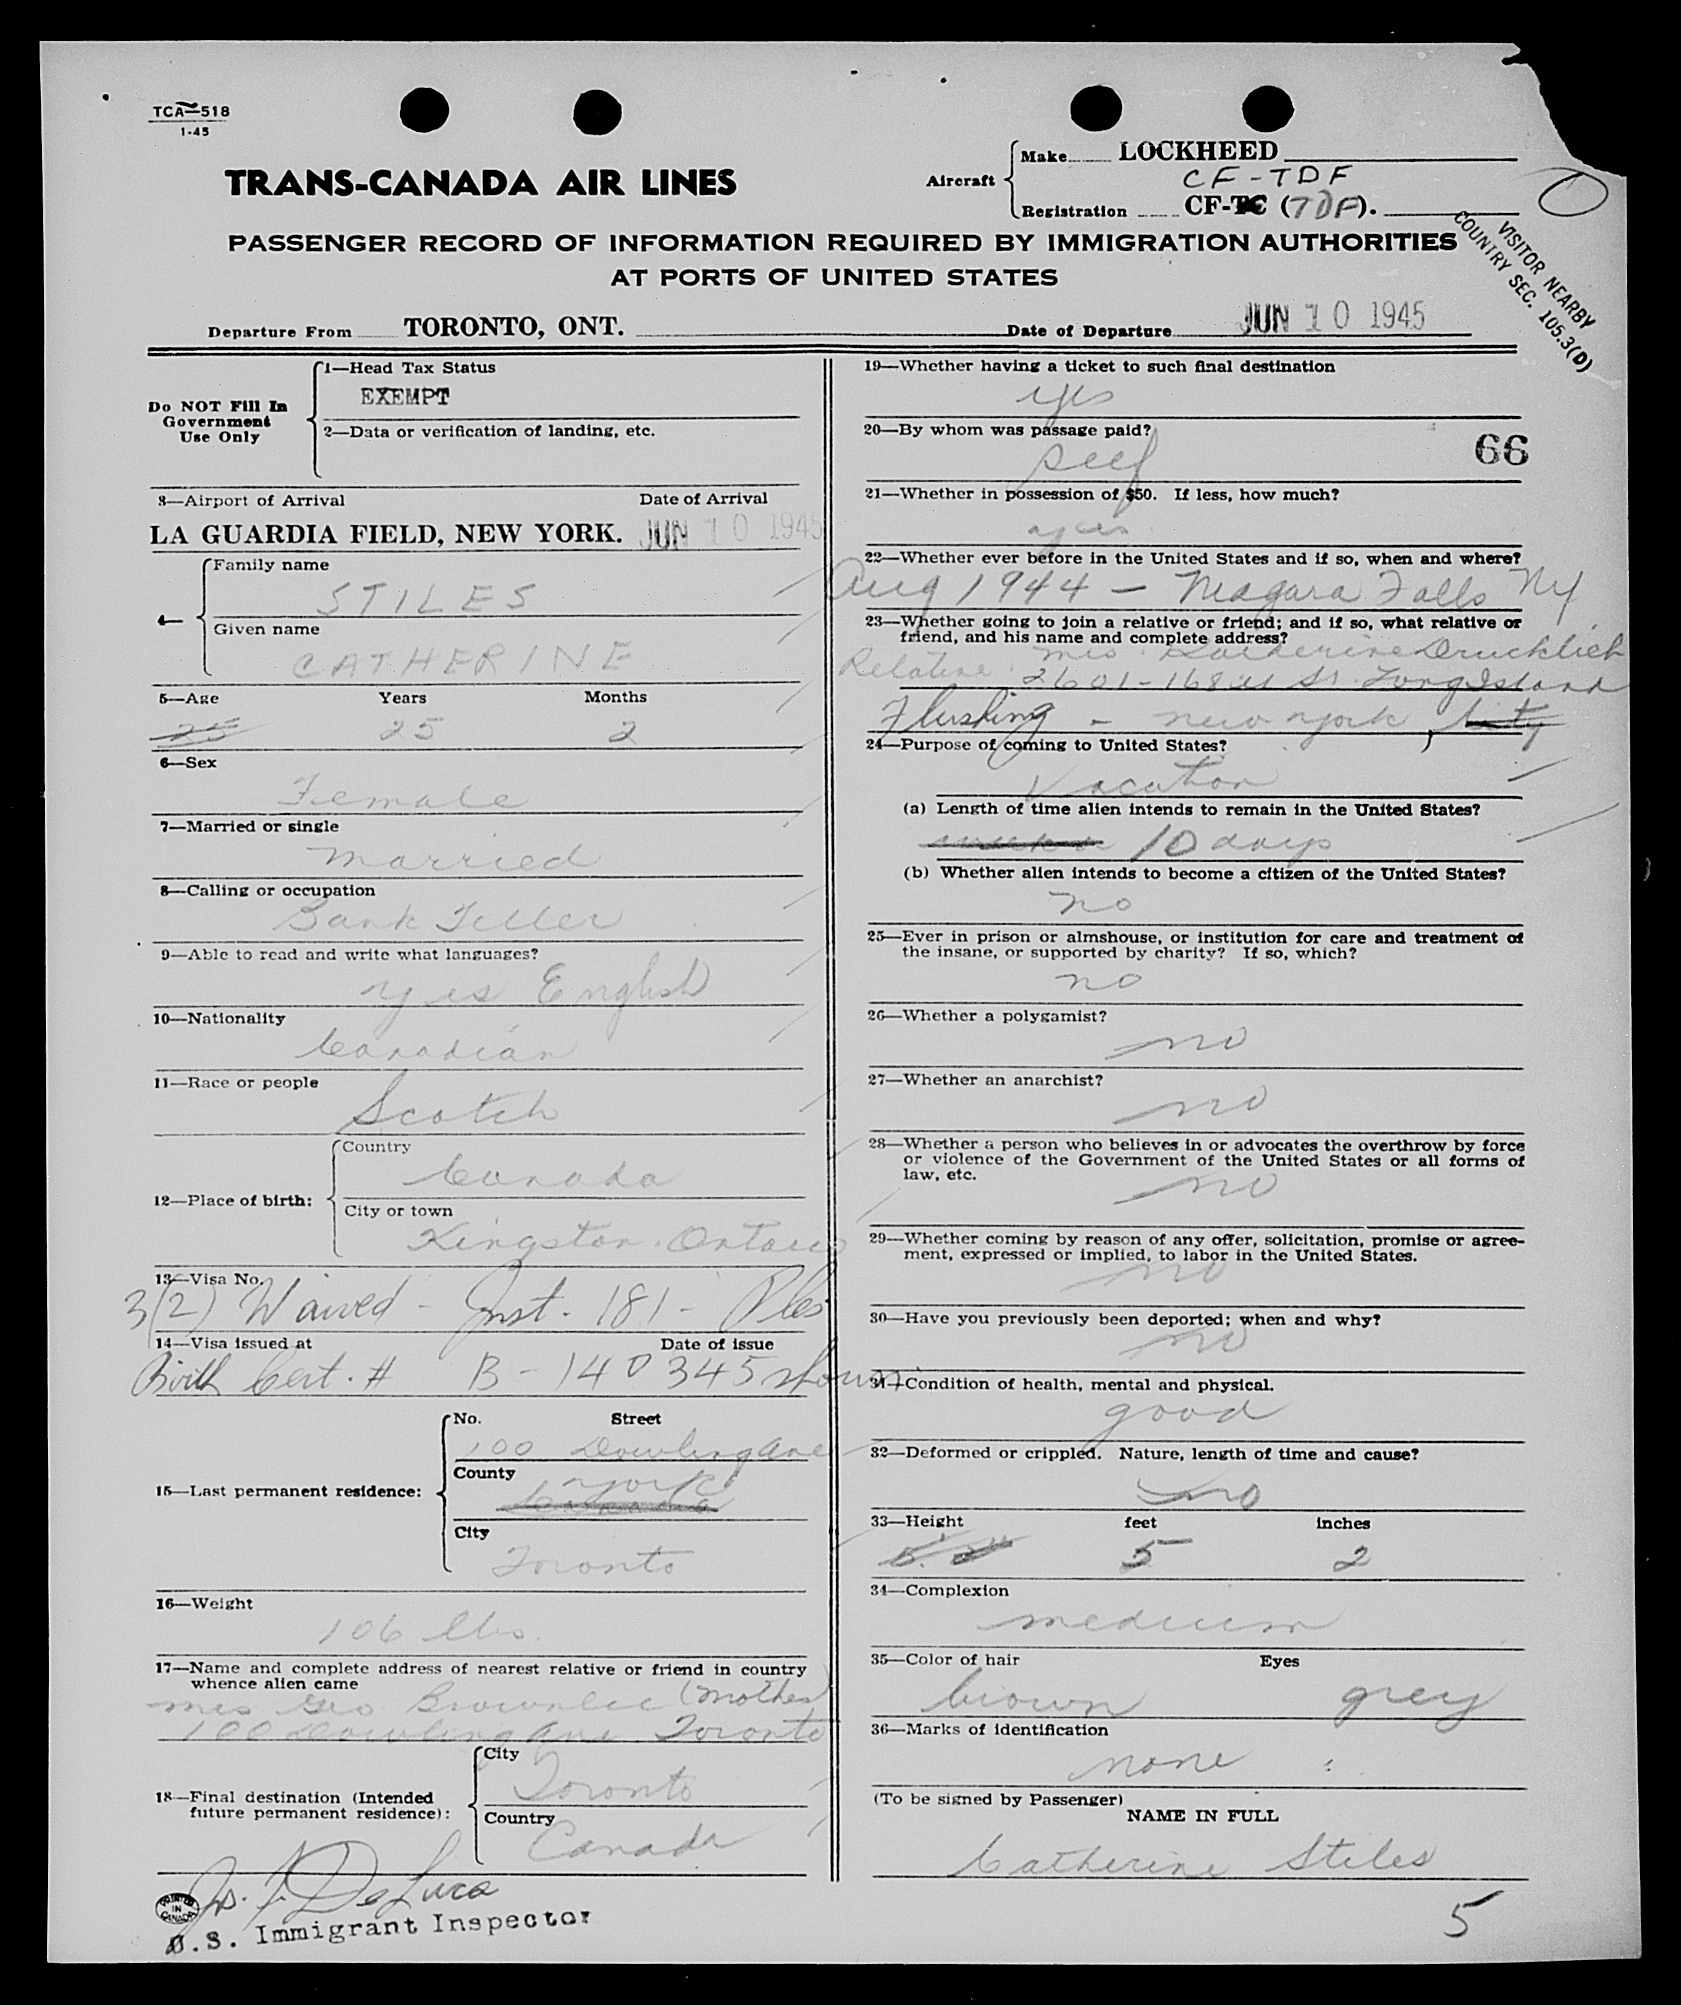 TCA-518
1-45
TRANS-CANADA AIR LINES
Aircraft
Make LOCKHEED
CF-TDF
Registration CF-TC (TDF).
PASSENGER RECORD OF INFORMATION REQUIRED BY IMMIGRATION AUTHORITIES
AT PORTS OF UNITED STATES
VISITOR NEARBY
COUNTRY SEC. 105.3(D)
Departure From TORONTO, ONT. Date of Departure JUN 10 1945
Do NOT Fill In
Government
Use Only
1—Head Tax Status
EXEMPT
2—Data or verification of landing, etc.
3—Airport of Arrival Date of Arrival
LA GUARDIA FIELD, NEW YORK. JUN 10 1945
4—
Family name
STILES
Given name
CATHERINE
5—Age Years Months
25 25 2
6—Sex
Female
7—Married or single
Married
8—Calling or occupation
Bank Teller
9—Able to read and write what languages?
yes English
10—Nationality
Canadian
11—Race or people
Scotch
12—Place of birth:
Country
Canada
City or town
Kingston. Ontario
13—Visa No.
3(2) Waived - Inst. - 181 -
14—Visa issued at Date of issue
Birth Cert. # B-140345 shown
15—Last permanent residence:
No. Street
100 Dowling Ave
County
York
Canada
City
Toronto
16—Weight
106 lbs.
17—Name and complete address of nearest relative or friend in country
whence alien came
Mrs Geo Brownlee (Mother)
100 Dowling Ave. Toronto
18—Final destination (Intended
future permanent residence):
City
Toronto
Country
Canada
De Luca
U.S. Immigrant Inspector
PRINTED
IN
CANADA
19—Whether having a ticket to such final destination
yes
20—By whom was passage paid?
self
66
21—Whether in possession of $50. If less, how much?
yes
22—Whether ever before in the United States and if so, when and where?
Aug 1944 - Niagara Falls NY
23—Whether going to join a relative or friend; and if so, what relative or
friend, and his name and complete address?
Relative. Mrs. Katherine Drucklieb
2601-168th St. Long Island
Flushing - New York City
24—Purpose of coming to United States?
Vacation
(a) Length of time alien intends to remain in the United States?
10 days
(b) Whether alien intends to become a citizen of the United States?
no
25—Ever in prison or almshouse, or institution for care and treatment of
the insane, or supported by charity? If so, which?
no
26—Whether a polygamist?
no
27—Whether an anarchist?
no
28—Whether a person who believes in or advocates the overthrow by force
or violence of the Government of the United States or all forms of
law, etc.
no
29—Whether coming by reason of any offer, solicitation, promise or agree-
ment, expressed or implied, to labor in the United States.
no
30—Have you previously been deported; when and why?
no
31—Condition of health, mental and physical.
good
32—Deformed or crippled. Nature, length of time and cause?
no
33—Height feet inches
5' 2" 5 2
34—Complexion
medium
35—Color of hair Eyes
brown grey
36—Marks of identification
none
(To be signed by Passenger)
NAME IN FULL
Catherine Stiles
5